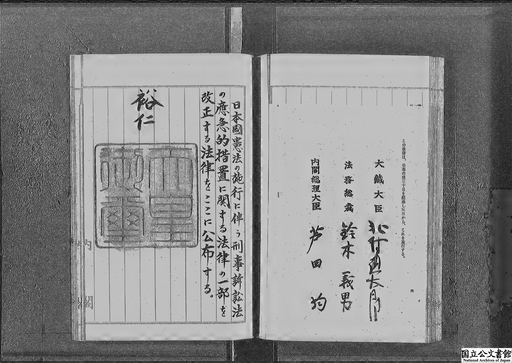 日本國憲法の施行に伴う刑事訴訟法
の應急的措置に関する法律の一部を
改正する法律をここに公布する。
裕仁
天皇
御璽
内閣
大藏大臣
法務総裁 鈴木義男
内閣総理大臣 芦田均
国立公文書館
National Archives of Japan